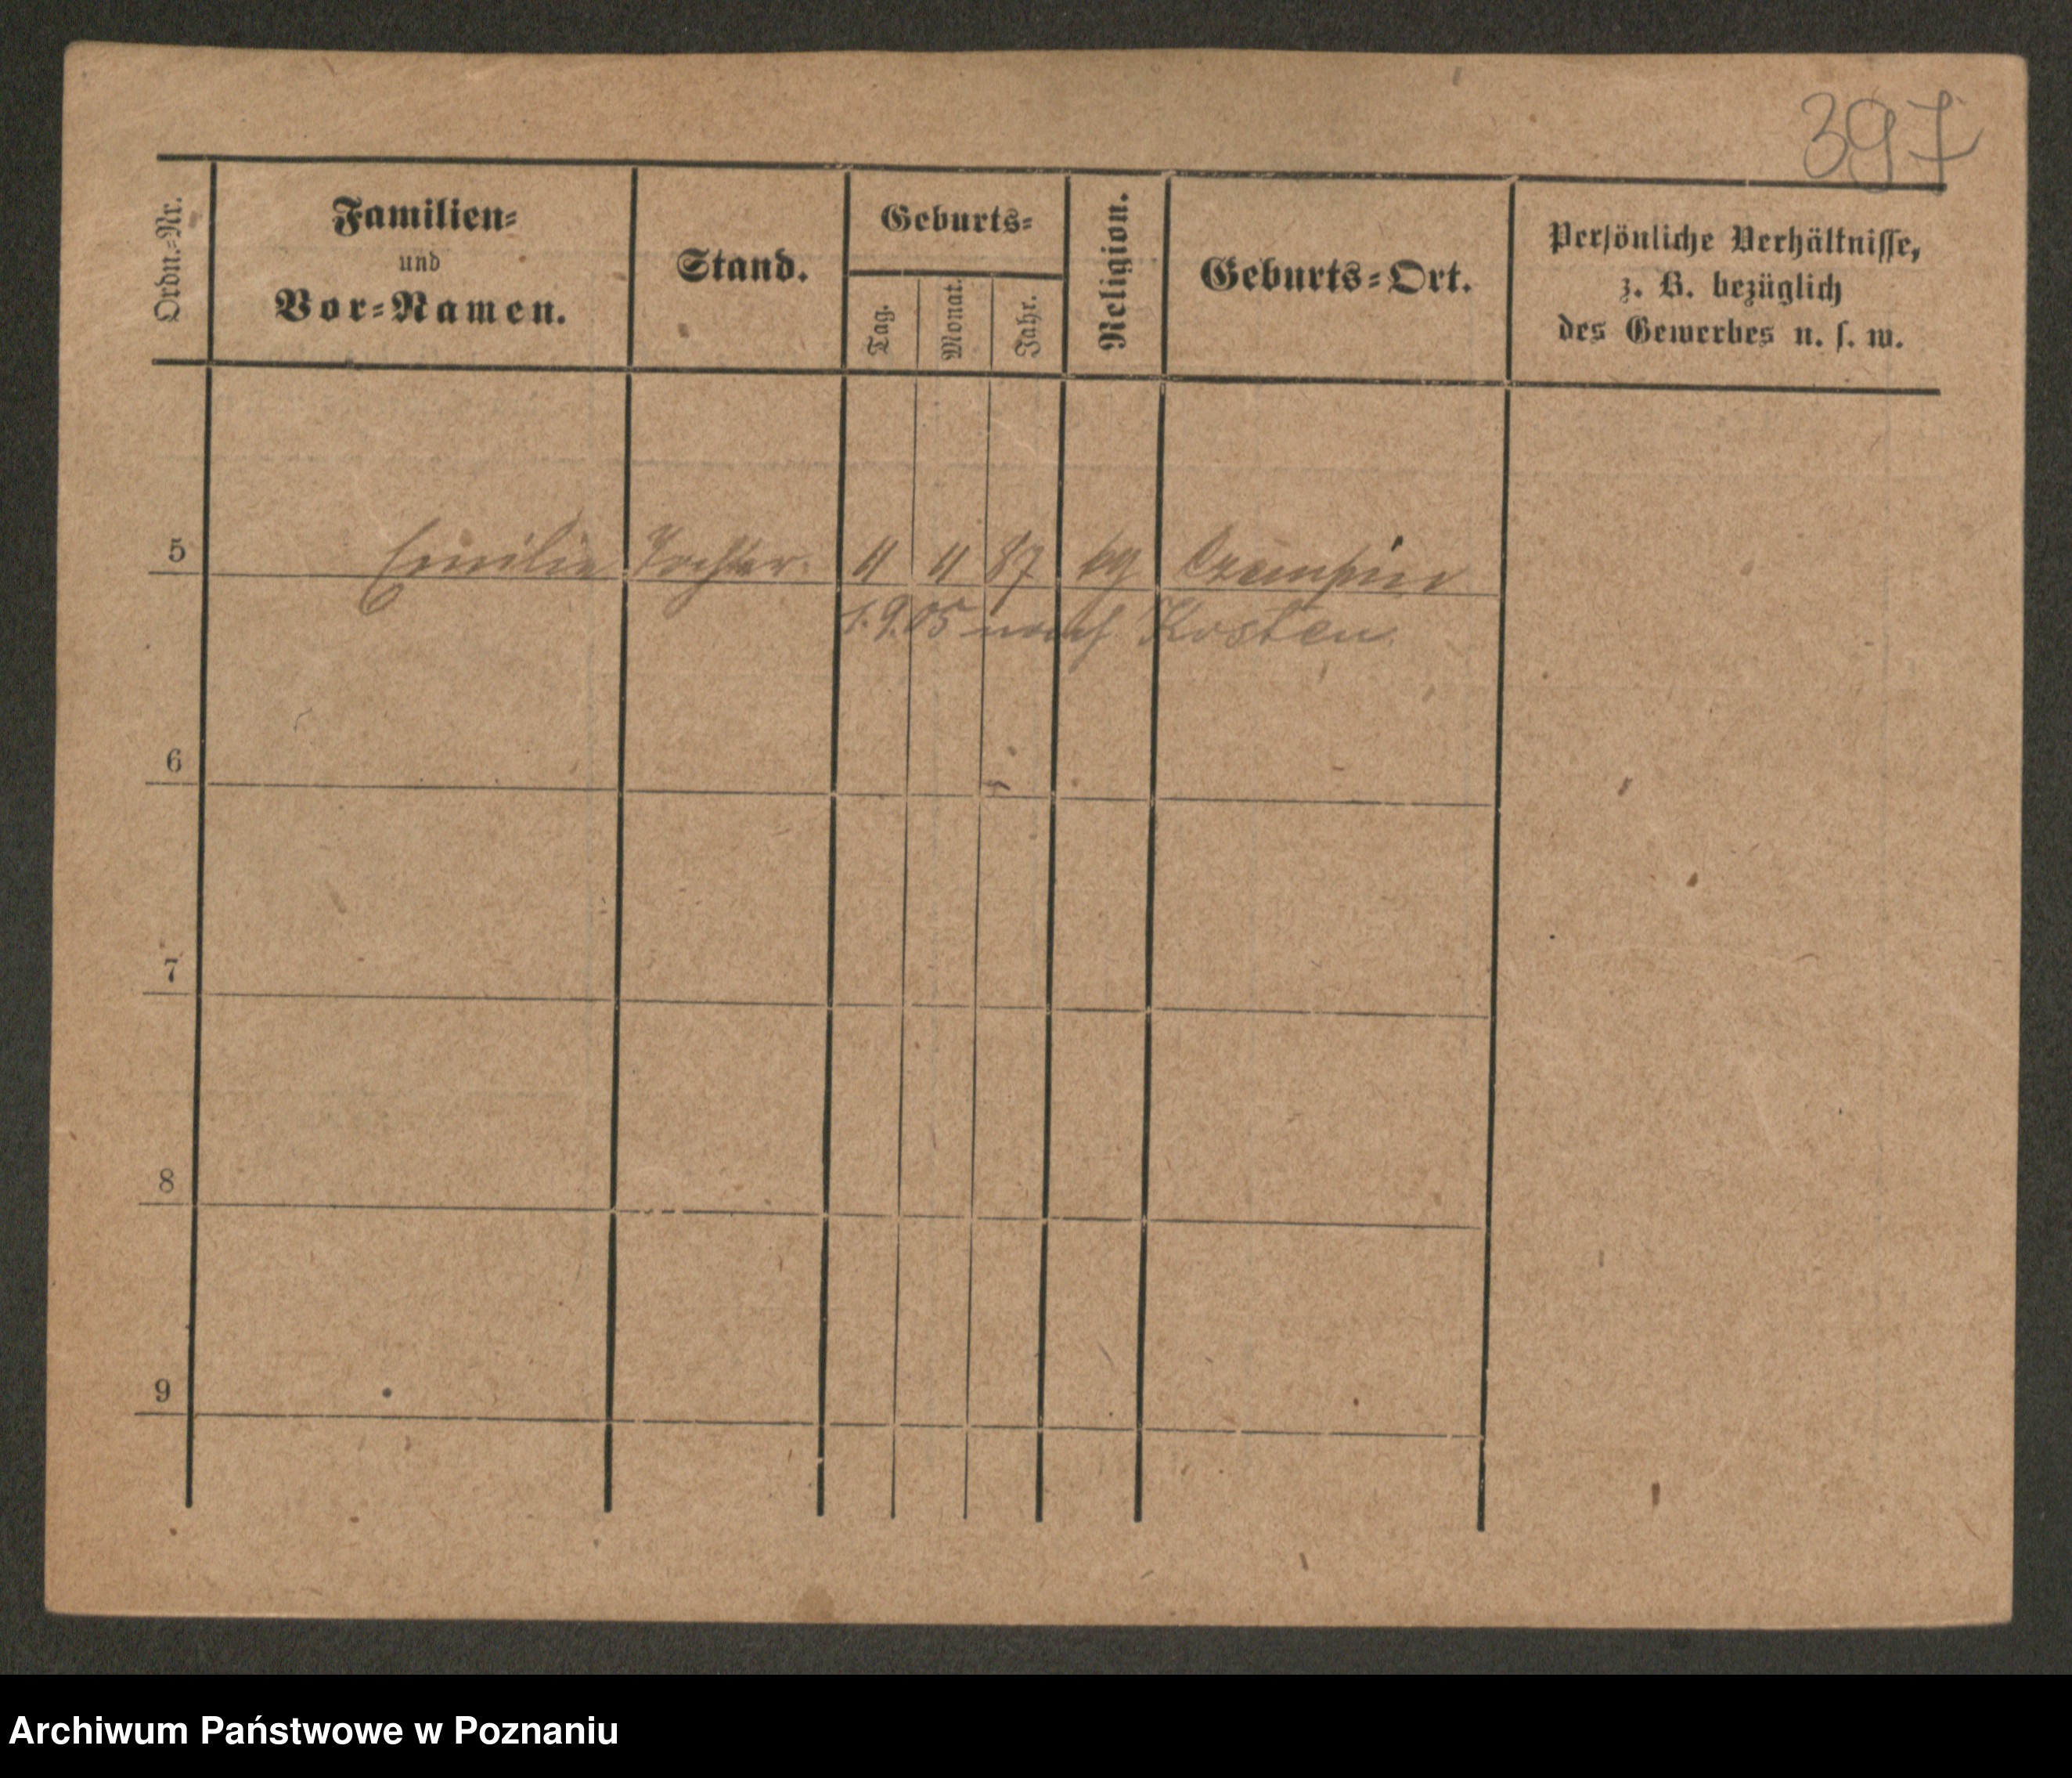 397
Ordn.-Nr.
Familien-
und
Vor-Namen.
Stand.
Geburts-
Tag.
Monat.
Jahr.
Religion.
Geburts-Ort.
Persönliche Verhältnisse,
z. B. bezüglich
des Gewerbes u. s. w.
5 Emilie Tochter. 87
1.9.05 nach Kosten
6
7
8
9
Archiwum Państwowe w Poznaniu